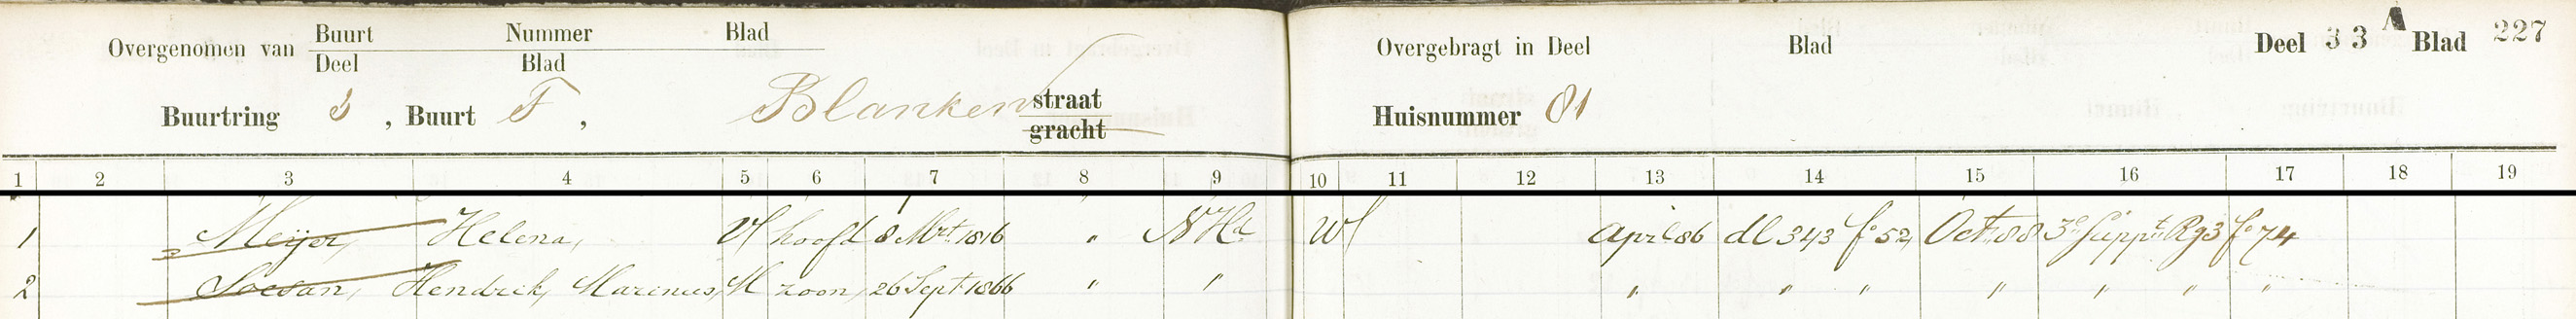 Overgenomen van Buurt Nummer Blad
Deel Blad
Overgebragt in Deel Blad Deel 33 A Blad 227
Buurtring 3, Buurt F, Blanken straat
gracht
Huisnummer 81
1 2 3 4 5 6 7 8 9 10 11 12 13 14 15 16 17 18 19
1 Meijer, Helena, Vl hoofd 8 Mrt 1816 " NHd Wl April 86 dl 343 fo 52 Oct 88 3e Suppt Rg3 fo 74
2 Soesan, Hendrik, Marinus, M zoon, 26 Sept 1866 " " " " " " " " "